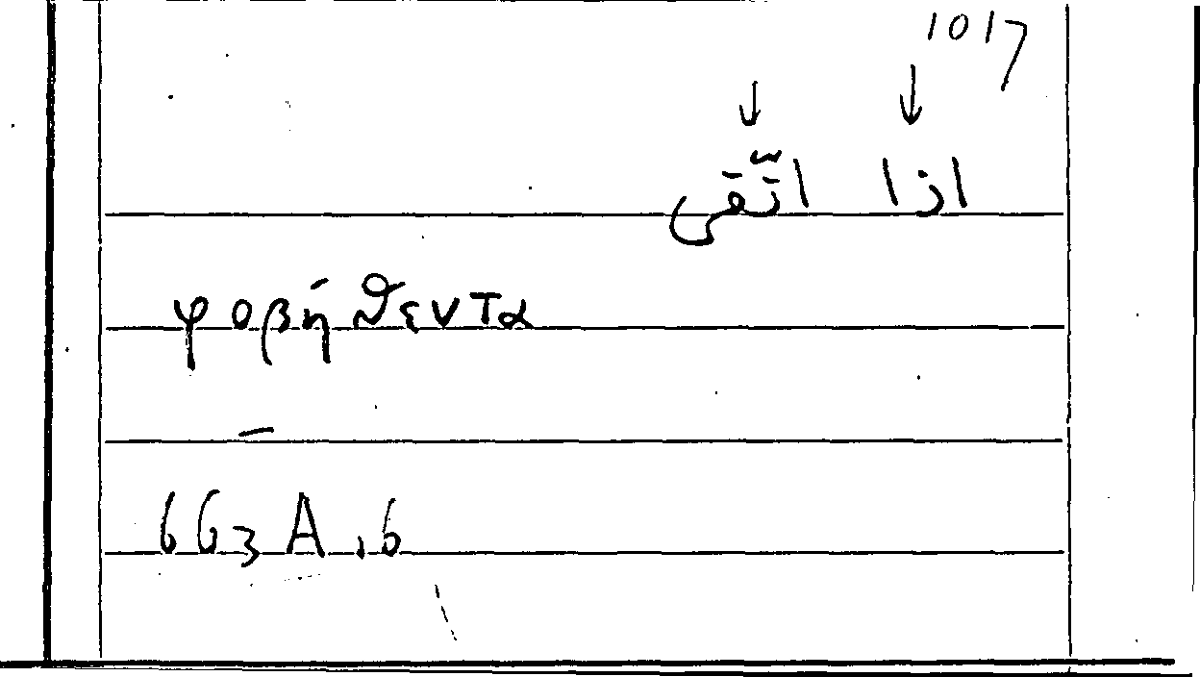 1017
↓ ↓
اذا اتّقى
φοβήθεντα
–
663 A, 6